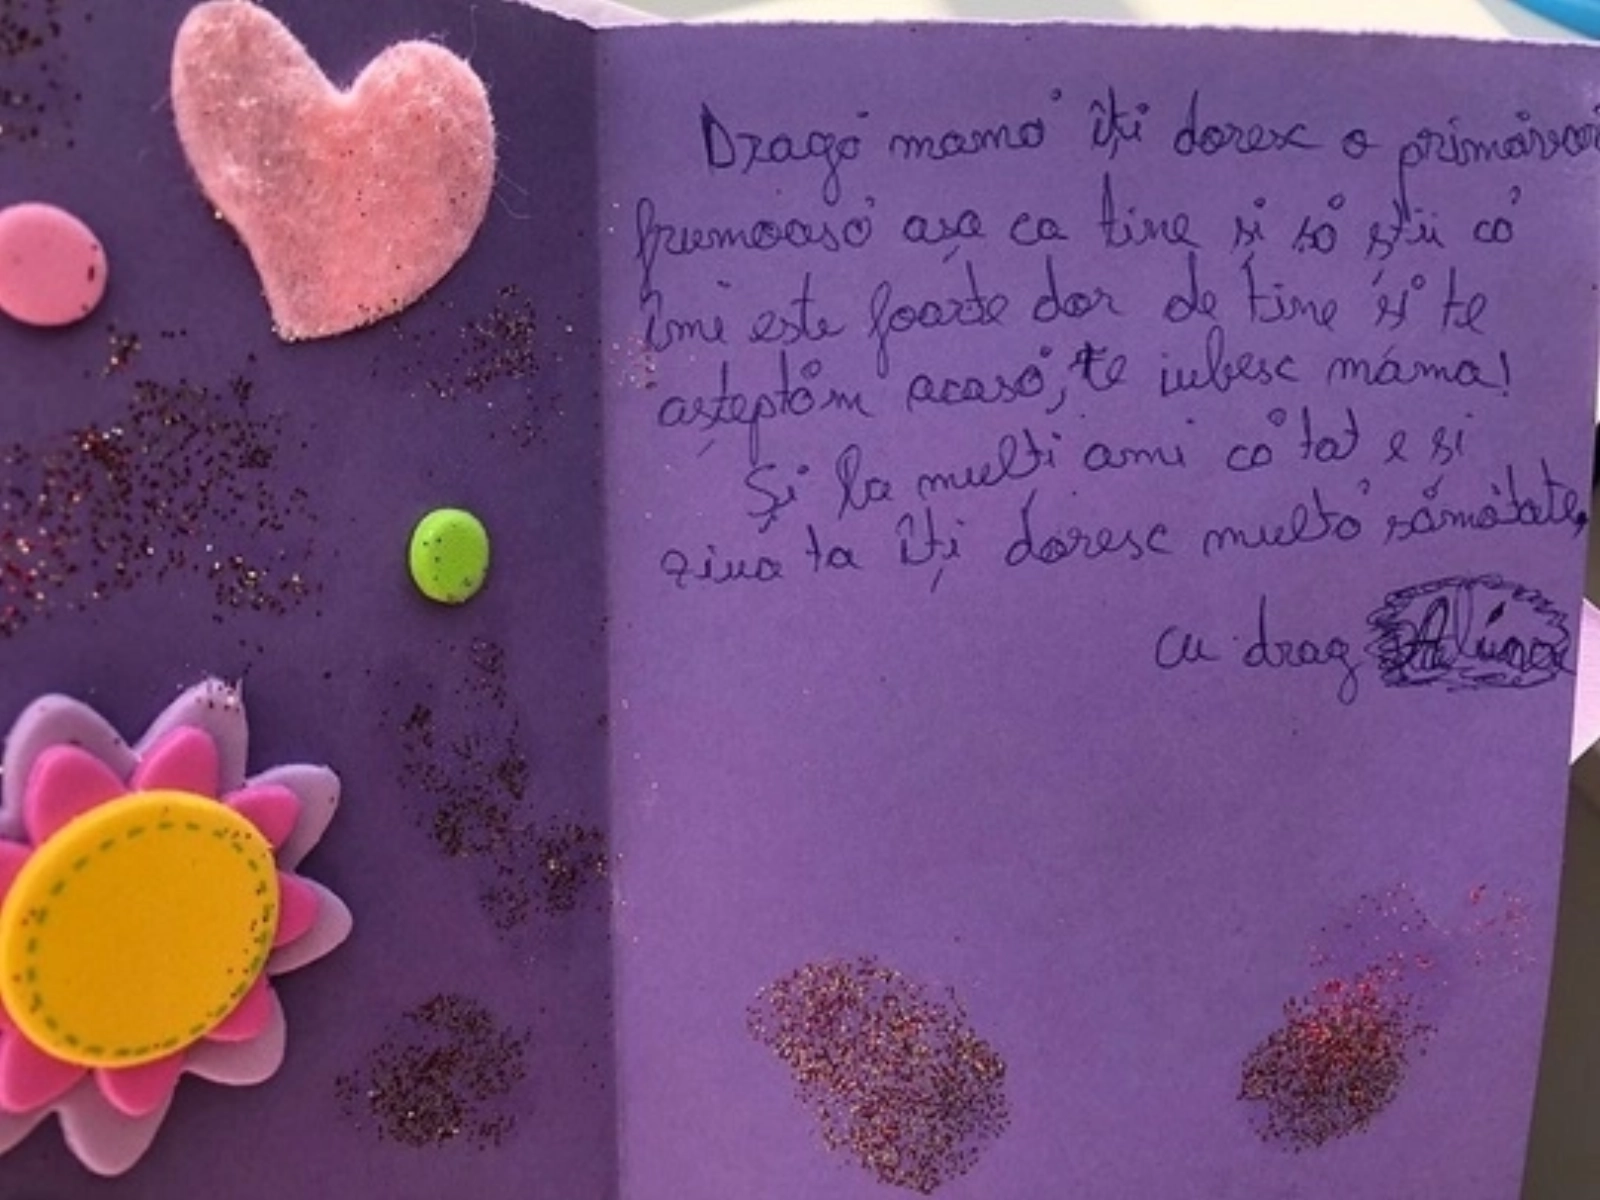 Dragă mamă îți doresc o primăvară
frumoasă așa ca tine și să știi că
îmi este foarte dor de tine și te
așteptăm acasă, te iubesc mama!
Și la mulți ani că tot e și
ziua ta îți doresc multă sămătate,
cu drag Alina